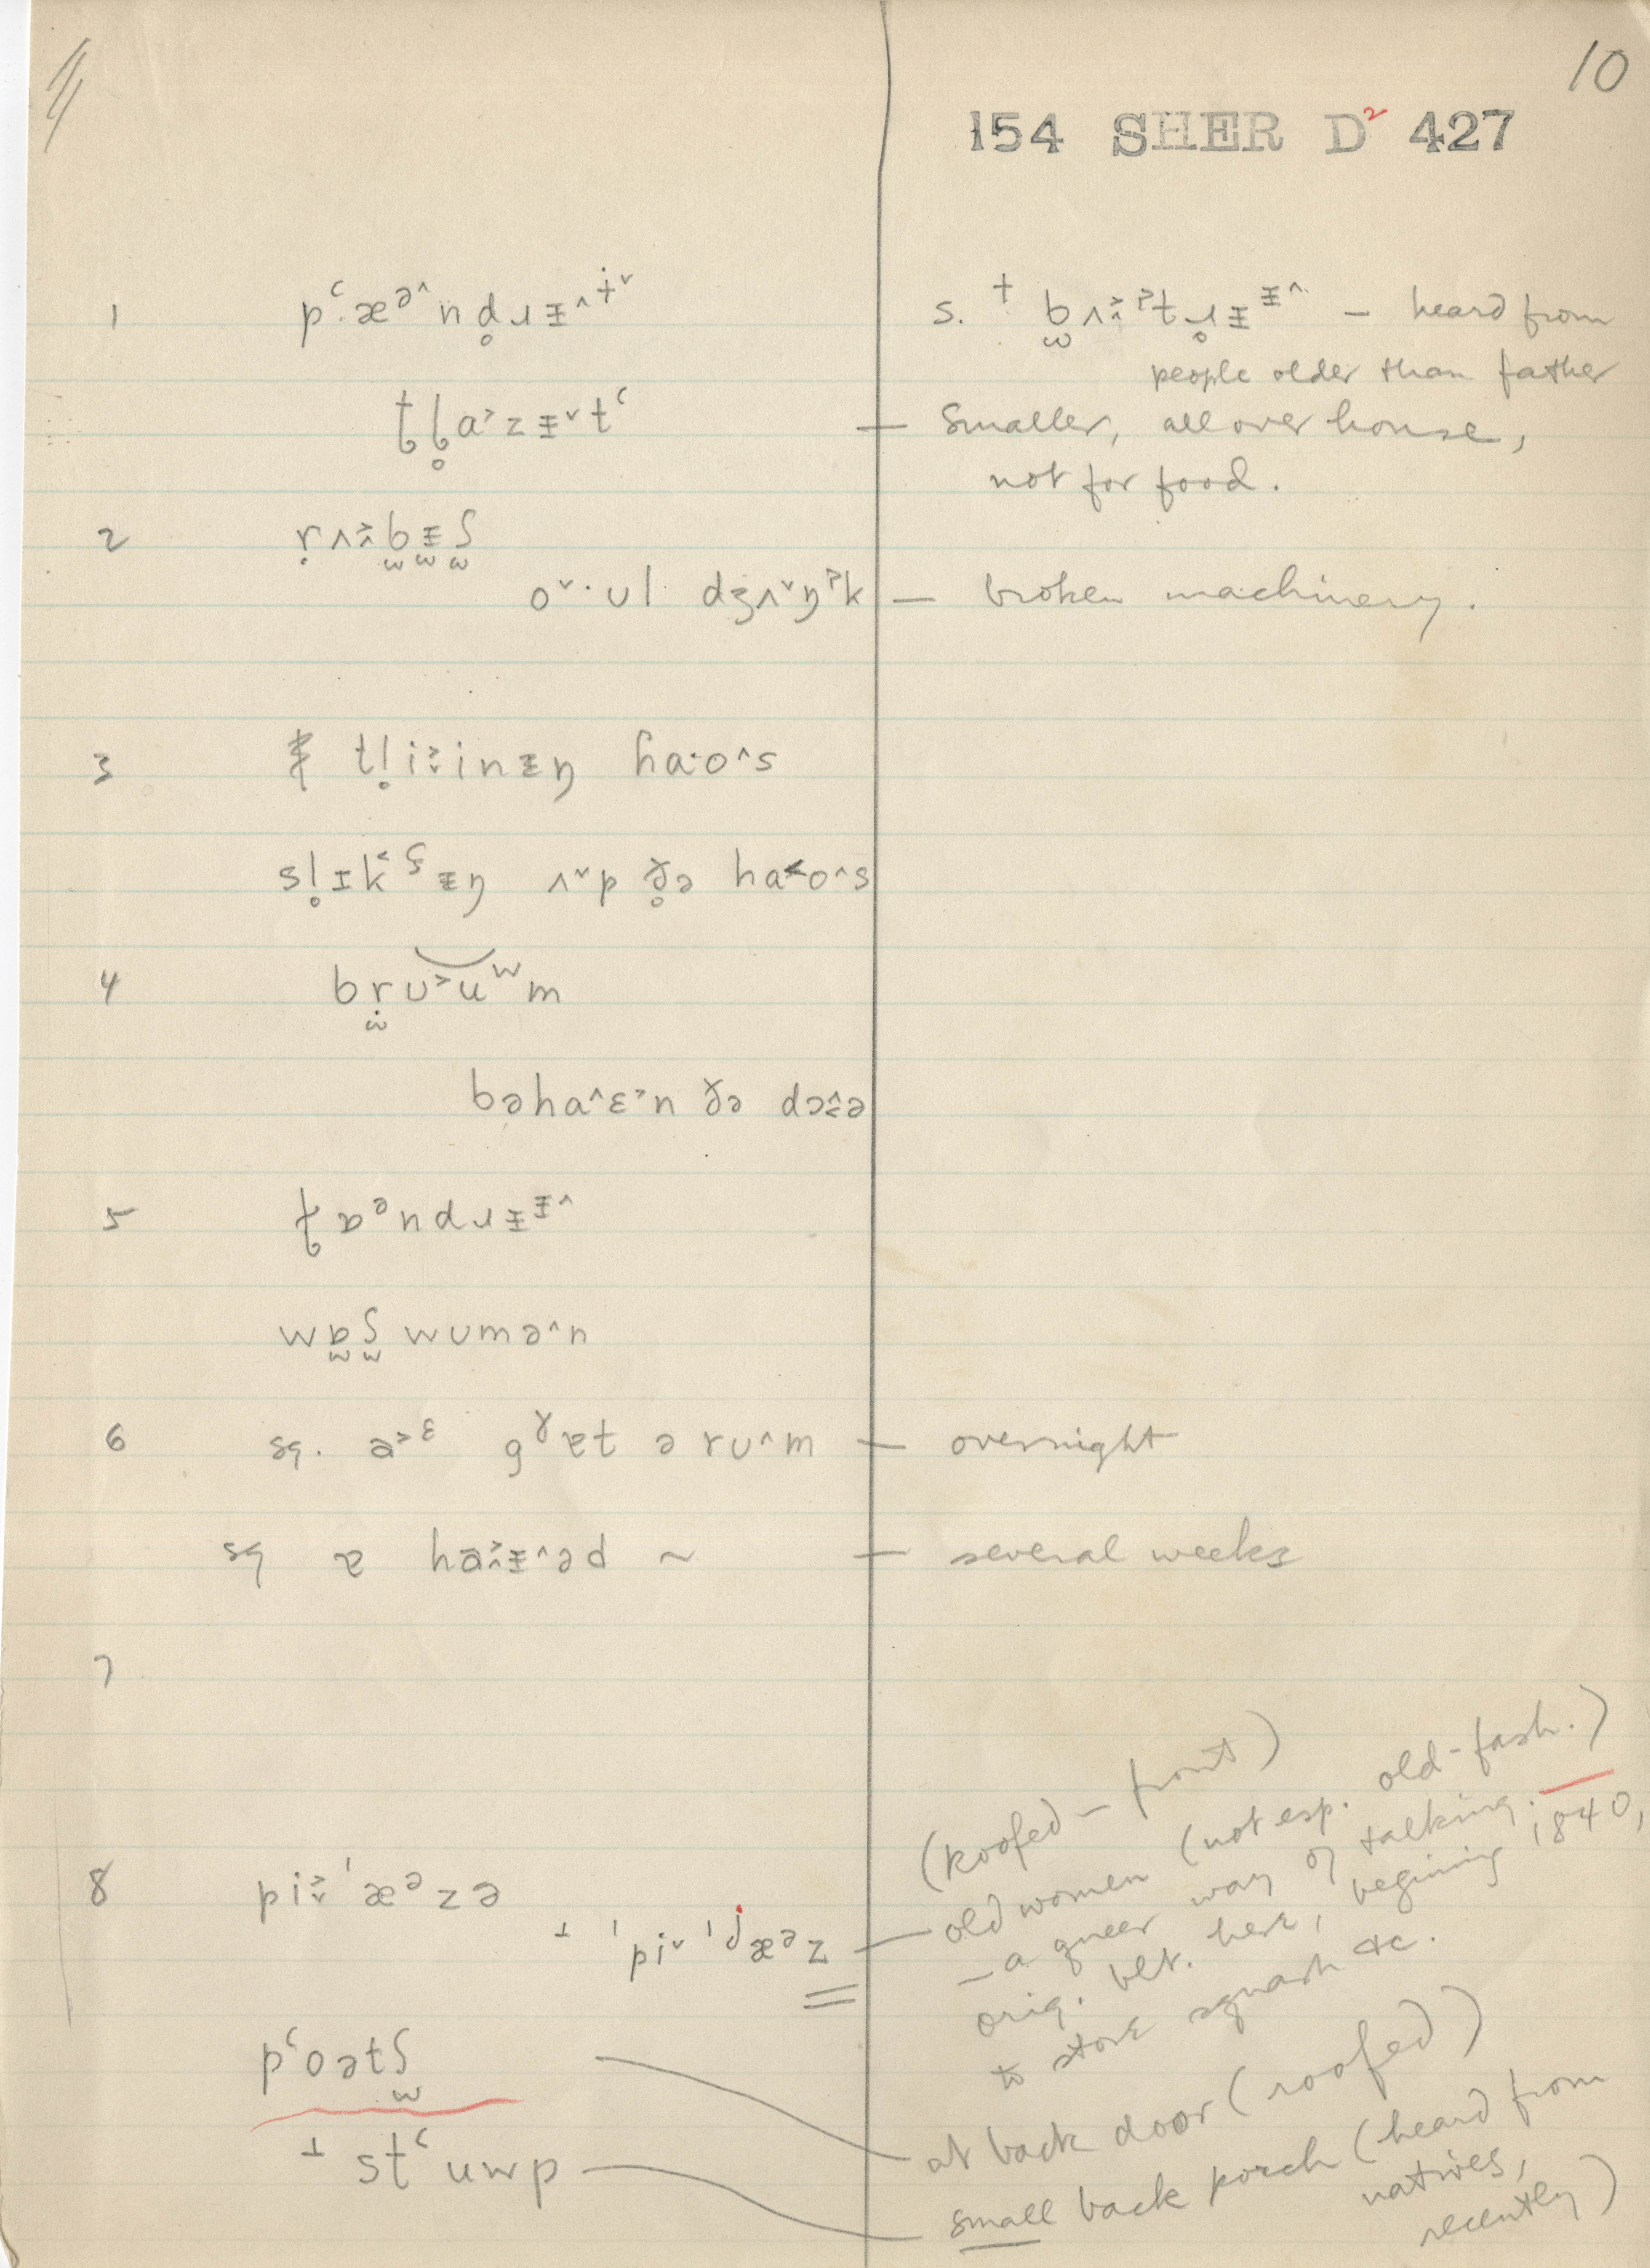 10
154 SHER D² 427
1 pʿ·æᵊ^nd̥ɹɪ̵^ɪ̵ˇ s. † b̫ʌ˃ɨ^ˀtɹ̥ɪ̵ɪ̵^ — heard from
people older than father
ƫɭ̥a˃zɪ̵ˇtʿ — Smaller, all over house,
not for food.
2 ṛʌɪ̵b̫ɪ̵̫ʃ̫
oˇ·ʊl dʒʌˇŋˀk — broken machinery.
3 tl̥i˃ˇinɪ̵ŋ ɦa·o^s
sl̥ɪk˂ʂɪ̵ŋ ʌˇp ð̥ə ha˂o^s
4 bṛ̫ʊ˃uʷm
bəha^ɛ˃n ðə dɔ^˂ə
5 ƫɒᵊndɹɪ̵ɪ̵^
wɒ̫ʃ̫ wʊmə^n
6 sq. a˃ᵋ gˠɐt ə rʊ^m — overnight
sq ɐ ha˃^ɪ̵^əd ~ — several weeks
7
(roofed — front)
8 pi˃ˇˈæᵊzə
⊥ ˈpiˇˈɟæᵊz — old women (not esp. old-fash.)
— a queer way of talking.
orig. blt. here, begining 1840,
to store squash &c.
pʿoətʃ̫ at back door (roofed)
⊥ stʿuwp small back porch (heard from
natives,
recently)